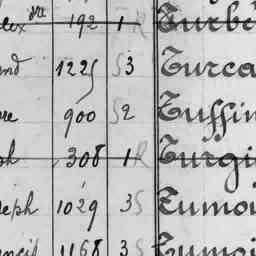 lex dre 192 1 R Turb
and 1225 S 3 Turca
re 900 S 2 Tuffin
ph 308 1 R Turgi
seph 1029 3 S Tumoi
ncis 1168 3 S Tumoi